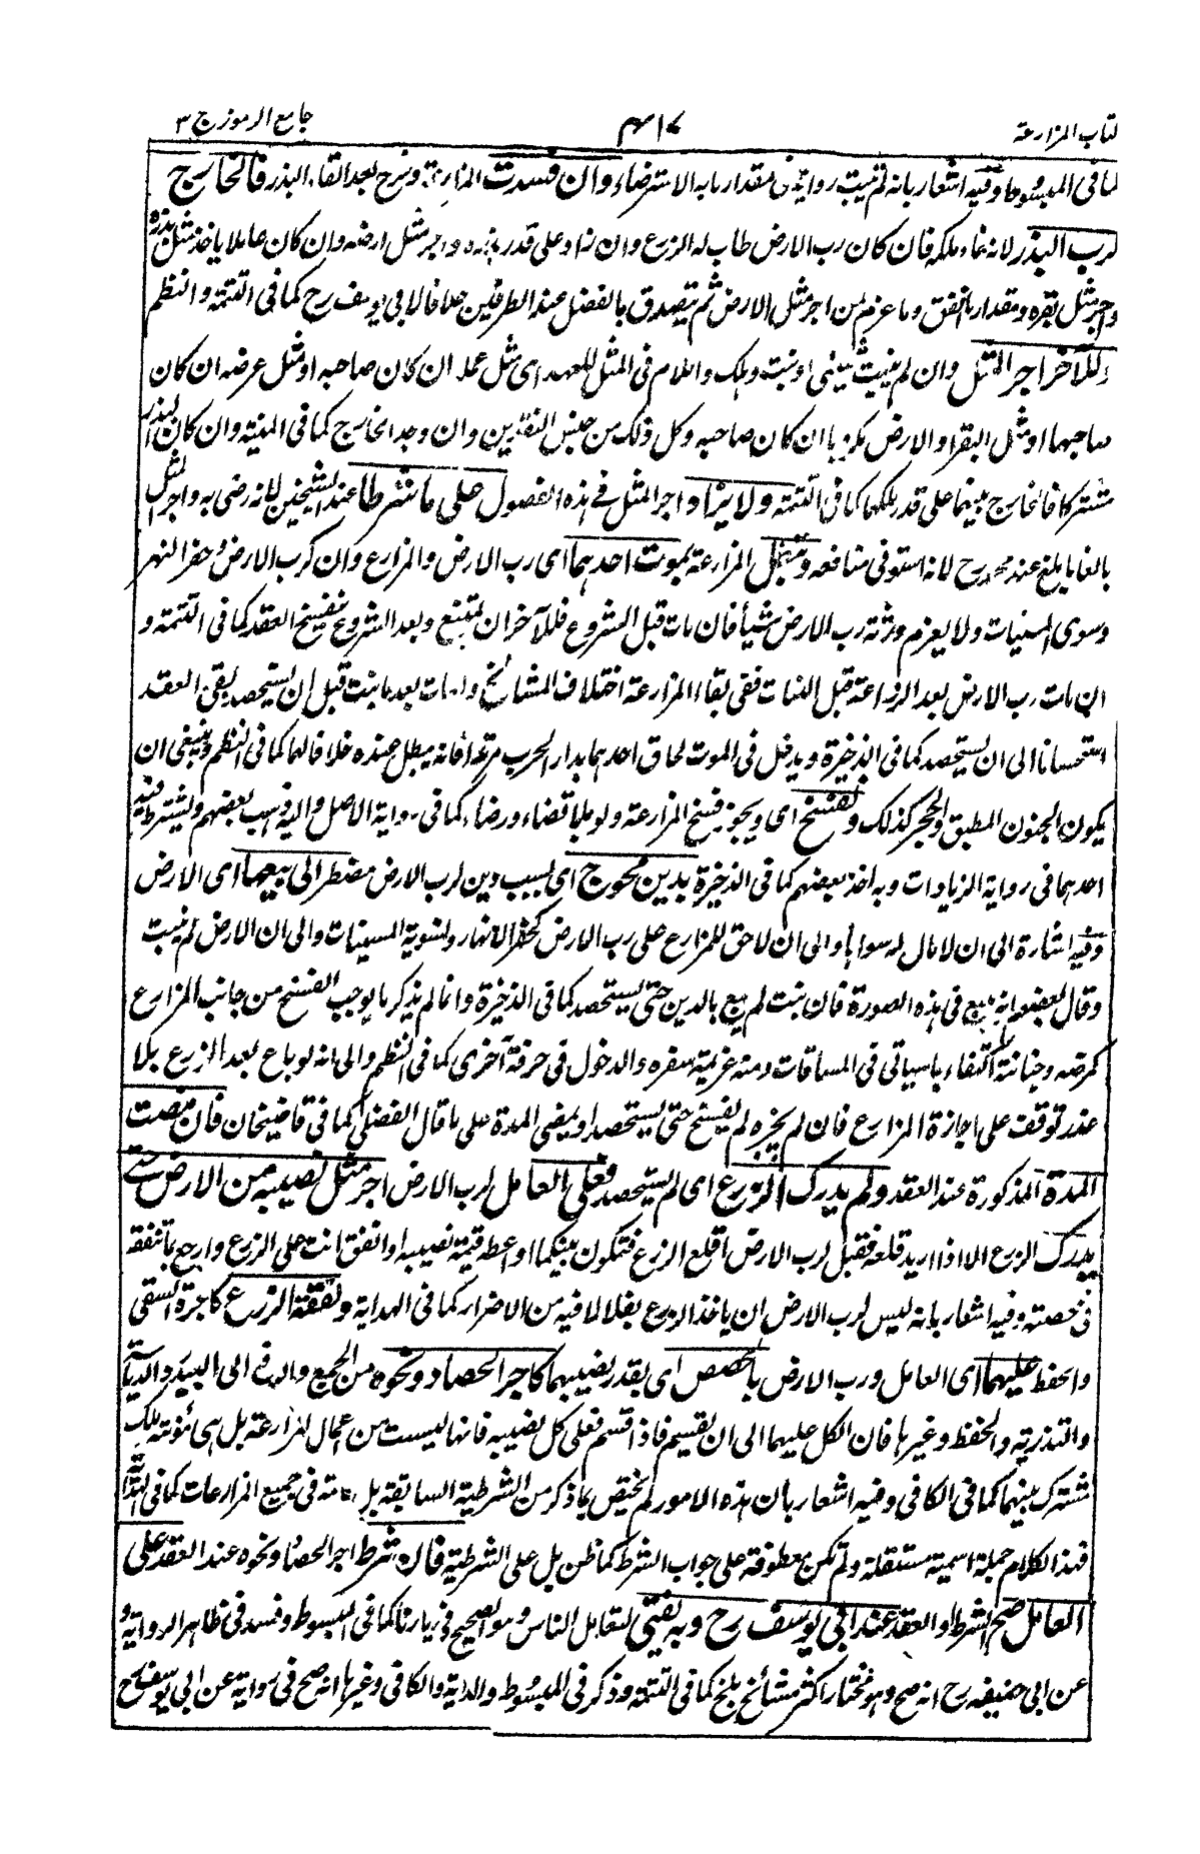 كتاب المزارعة ٤١٧ جامع الرموز ج ٣
كما فى المبسوط وفيه اشعار بانه لم تثبت رواية فى مقدار ما به الاسترضاء وان فسدت المزارعة وخرج بعد القاء البذر فالخارج
لرب البذر لانه نماء ملكه فان كان رب الارض طاب له الزرع وان زاد على قدر بذره واجر مثل ارضه وان كان عاملا ياخذ مثل بذره
واجر مثل بقره ومقدار ما انفق وما غرم من اجر مثل الارض ثم يتصدق بالفضل عند الطرفين خلافا لابى يوسف رح كما فى التتمة والنظم
وللآخر اجر المثل وان لم ينبت شئ او نبت وهلك واللام فى المثل للعهد اى مثل عمله ان كان صاحبه او مثل عرضه ان كان
صاحبها او مثل البقر او الارض مكروبا ان كان صاحبه وكل ذلك من جنس النقدين وان وجد الخارج كما فى المنية وان كان البذر
مشتركا فالخارج بينهما على قدر ملكهما كما فى التتمة ولا يزاد اجر المثل فى هذه الفصول على ما شرطا عند الشيخين لانه رضى به واجر المثل
بالغا ما بلغ عند محمد رح لانه استوفى منافعه وتبطل المزارعة بموت احدهما اى رب الارض والمزارع وان كرب الارض وحفر النهر
وسوى المسنيات ولا يغرم ورثة رب الارض شيأ فان مات قبل الشروع فللآخر ان يمتنع وبعد الشروع ينفسخ العقد كما فى التتمة و
ان مات رب الارض بعد الزراعة قبل النبات ففى بقاء المزارعة اختلاف المشائخ ولو مات بعد ما نبت قبل ان يستحصد يبقى العقد
استحسانا الى ان يستحصد كما فى الذخيرة ويدخل فى الموت لحاق احدهما بدار الحرب مرتدا فانه يبطل عنده خلافا لهما كما فى النظم وينبغى ان
يكون الجنون المطبق والحجر كذلك وتفسخ اى ويجوز فسخ المزارعة ولو بلا قضاء ورضاء كما فى رواية الاصل واليه ذهب بعضهم ويشترط فيه
احدهما فى رواية الزيادات وبه اخذ بعضهم كما فى الذخيرة بدين محوج اى بسبب دين لرب الارض مضطر الى بيعها اى الارض
وفيه اشارة الى ان لا مال له سواها والى ان لا حق للمزارع على رب الارض كحفر الانهار وتسوية المسنيات والى ان الارض لم ينبت
وقال بعضهم انه يبيع فى هذه الصورة فان نبت لم يبع بالدين حتى يستحصد كما فى الذخيرة وانما لم يذكر ما يوجب الفسخ من جانب المزارع
كمرضه وخيانته اكتفاء بما سياتى فى المساقات ومنه عزيمة سفره والدخول فى حرفة اخرى كما فى النظم والى انه لو باع بعد الزرع بلا
عذر توقف على اجازة المزارع فان لم يجزه لم يفسخ حتى يستحصد او يمضى المدة على ما قال الفضلى كما فى قاضيخان فان مضت
المدة المذكورة عند العقد ولم يدرك الزرع اى لم يستحصد فعلى العامل لرب الارض اجر مثل نصيبه من الارض حتى
يدرك الزرع الا اذا اريد قلعه فقيل لرب الارض اقلع الزرع فتكون بينكما او اعطه قيمة نصيبه او انفق انت على الزرع وارجع بما تنفقه
فى حصته وفيه اشعار بانه ليس لرب الارض ان ياخذ الزرع بقلا لما فيه من الاضرار كما فى الهداية ونفقة الزرع كاجرة السقى
والحفظ عليهما اى العامل ورب الارض بالحصص اى بقدر نصيبهما كاجر الحصاد ونحوه من الجمع والرفع الى البيدر والدياسة
والتذرية والحفظ وغيرها فان الكل عليهما الى ان يقسم فاذا قسم فعلى كل نصيبه فانها ليست من اعمال المزارعة بل هى مؤنة ملك
مشترك بينهما كما فى الكافى وفيه اشعار بان هذه الامور لم يختص بما ذكر من الشرطية السابقة بل عامة فى جميع المزارعات كما فى
فهذا الكلام جملة اسمية مستقلة ولم تكن معطوفة على جواب الشرط كما ظن بل على الشرطية فان شرط اجر الحصاد ونحوه عند العقد على
العامل صح الشرط او العقد عند ابى يوسف رح وبه يفتى لتعامل الناس وهو الصحيح فى زماننا كما فى المبسوط وفسد فى ظاهر الرواية و
عن ابى حنيفه رح انه صح وهو مختار اكثر مشائخ بلخ كما فى التتمة وذكر فى المبسوط والهداية والكافى وغيرها انه صح فى رواية عن ابى يوسف رح